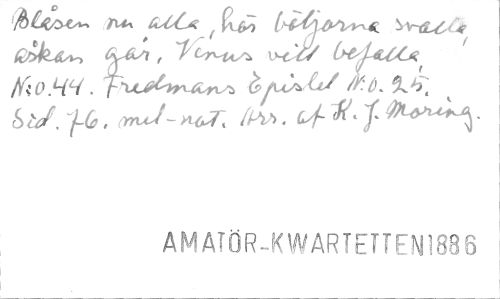 Blåsen nu alla, hör böljorna svalla,
åskan går, Venus vill befalla,
N:o. 44. Fredmans Epistel N:o. 25.
Sid. 76. mel-not. Arr. af K. J. Moring.
AMATÖR-KWARTETTEN 1886